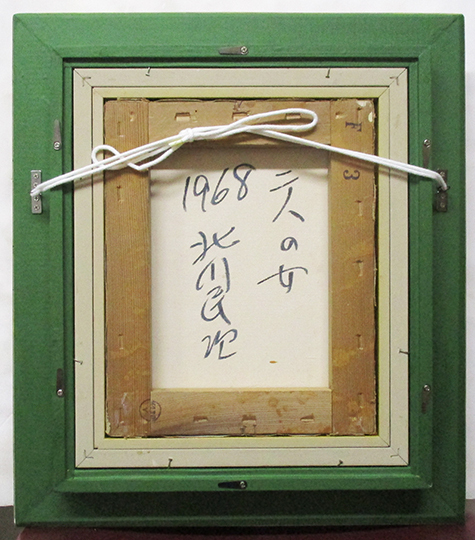 二人の女
1968
北川民次
F 3